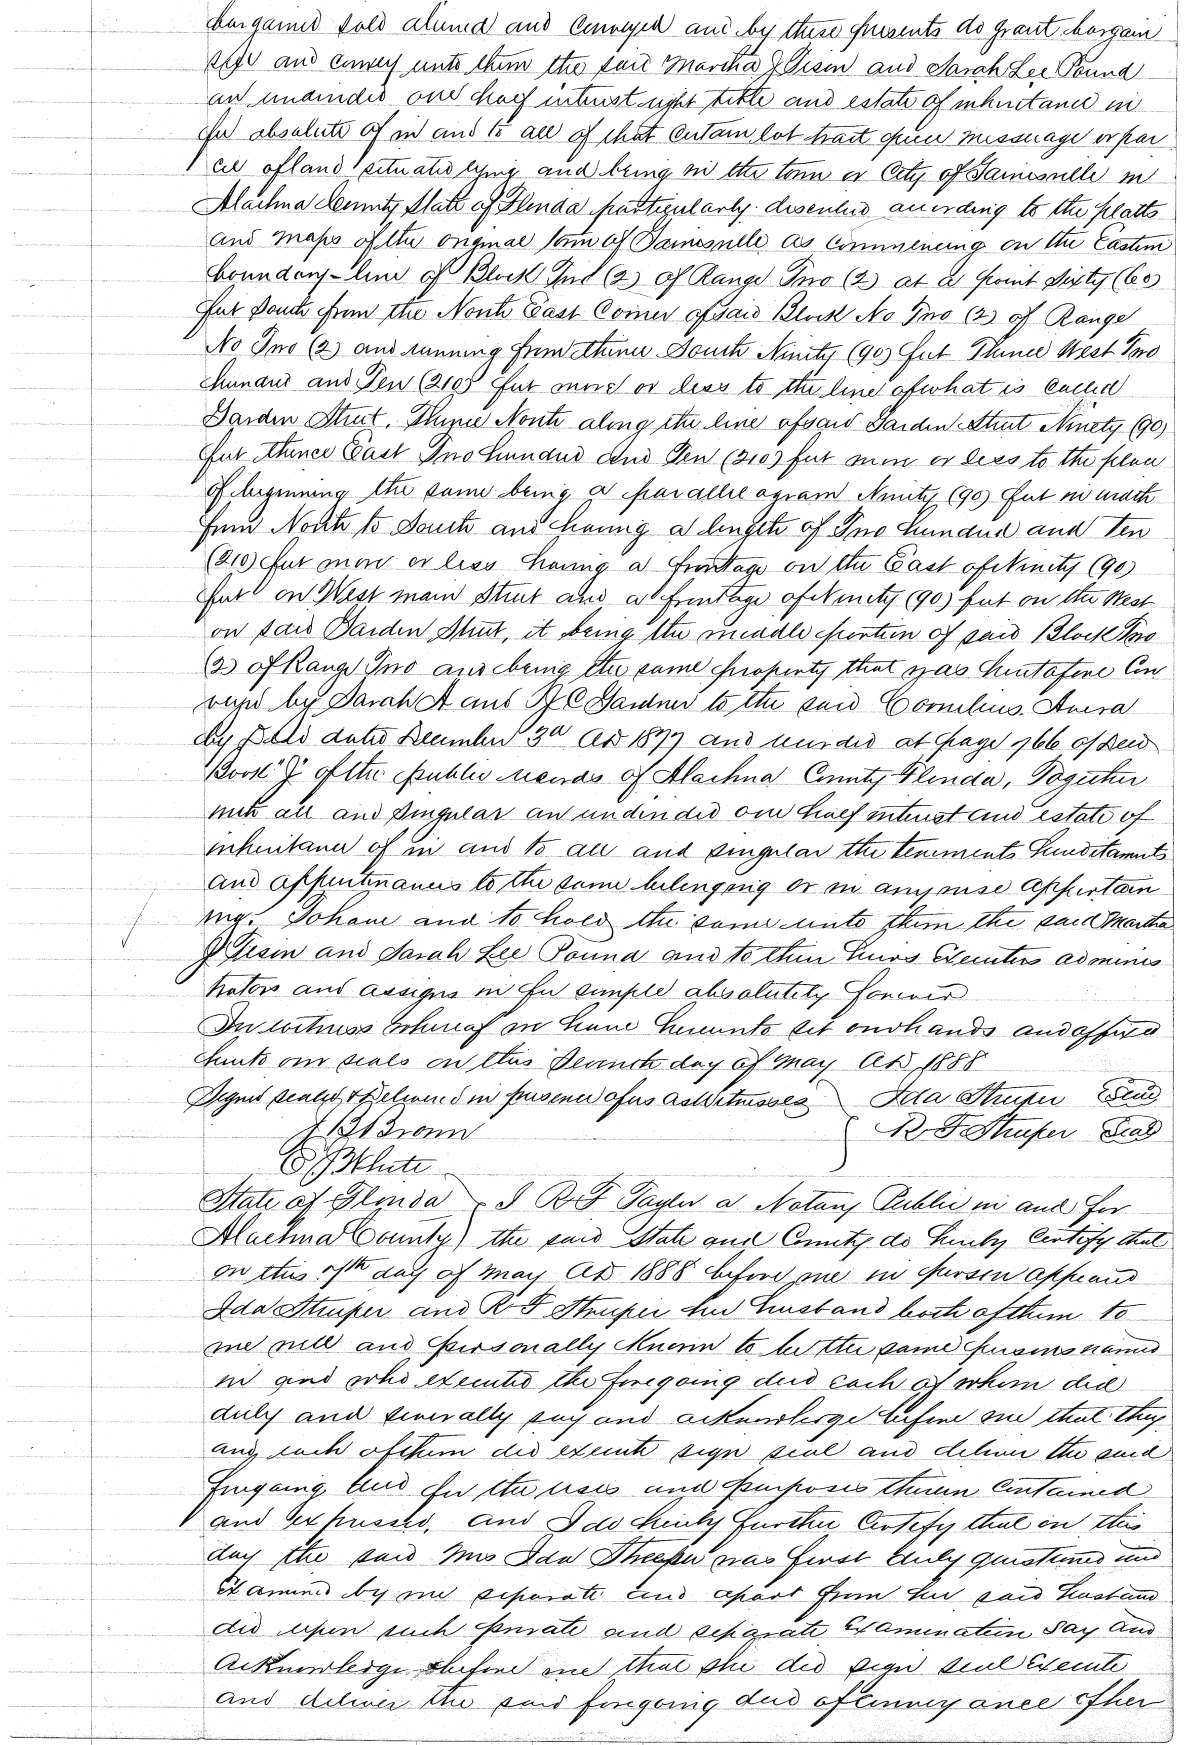 bargained sold aliened and Conveyed and by these presents do grant bargain
sell and convey unto them the said Martha J Tison and Sarah Lee Pound
an undivided one half interest right title and estate of inheritance in
fee absolute of in and to all of that Certain lot tract piece messuage or par
cel of land situated lying and being in the town or City of Gainesville in
Alachua County State of Florida particularly described according to the platts
and maps of the original town of Gainesville as Commencing on the Eastern
boundary line of Block Two (2) of Range Two (2) at a point Sixty (60)
feet South from the North East Corner of said Block No Two (2) of Range
No Two (2) and running from thence South Ninity (90) feet Thence West Two
hundred and Ten (210) feet more or less to the line of what is called
Garden Street, Thence North along the line of said Garden Street Ninety (90)
feet thence East Two hundred and Ten (210) feet more or less to the place
of beginning the same being a parallelogram Ninity (90) feet in width
from North to South and having a length of Two hundred and Ten
(210) feet more or less having a frontage on the East of Ninity (90)
feet on West main Street and a frontage of Ninety (90) feet on the West
on said Garden Street, it being the middle portion of said Block Two
(2) of Range Two and being the same property that was heretofore Con
veyed by Sarah A and C Gardner to the said Cornelius Avera
by Deed dated December 3d AD 1877 and recorded at page 766 of Deed
Book "J" of the public records of Alachua County Florida, Together
with all and singular an undivided one half interest and estate of
inheritance of in and to all and singular the tenements hereditaments
and appurtenances to the same belonging or in anywise appertain
ing. To have and to hold the same unto them the said Martha
J Tison and Sarah Lee Pound and to their heirs Executors adminis
trators and assigns in fee simple absolutely forever
In witness whereof we have hereunto set our hands and affixed
hereto our seals on this Seventh day of May AD 1888
Signed sealed & Delivered in presence of us as Witnesses } Ida Struper Seal
J B Brown { R F Struper Seal
E J White
State of Florida } I R F Taylor a Notary Public in and for
Alachua County) the said State and County do hereby Certify that
on this 7th day of May AD 1888 before me in person appeared
Ida Struper and R F Struper her husband both of them to
me well and personally Known to be the same persons named
in and who executed the foregoing deed each of whom did
duly and severally say and acknowledge before me that they
and each of them did execute sign seal and deliver the said
foregoing deed for the uses and purposes therein Contained
and expressed, and I do hereby further Certify that on this
day the said Mrs Ida Streeper was first duly questioned and
Examined by me separate and apart from her said husband
did upon such private and separate Examination say and
Acknowledge before me that she did sign seal Execute
and deliver the said foregoing deed of Conveyance of her